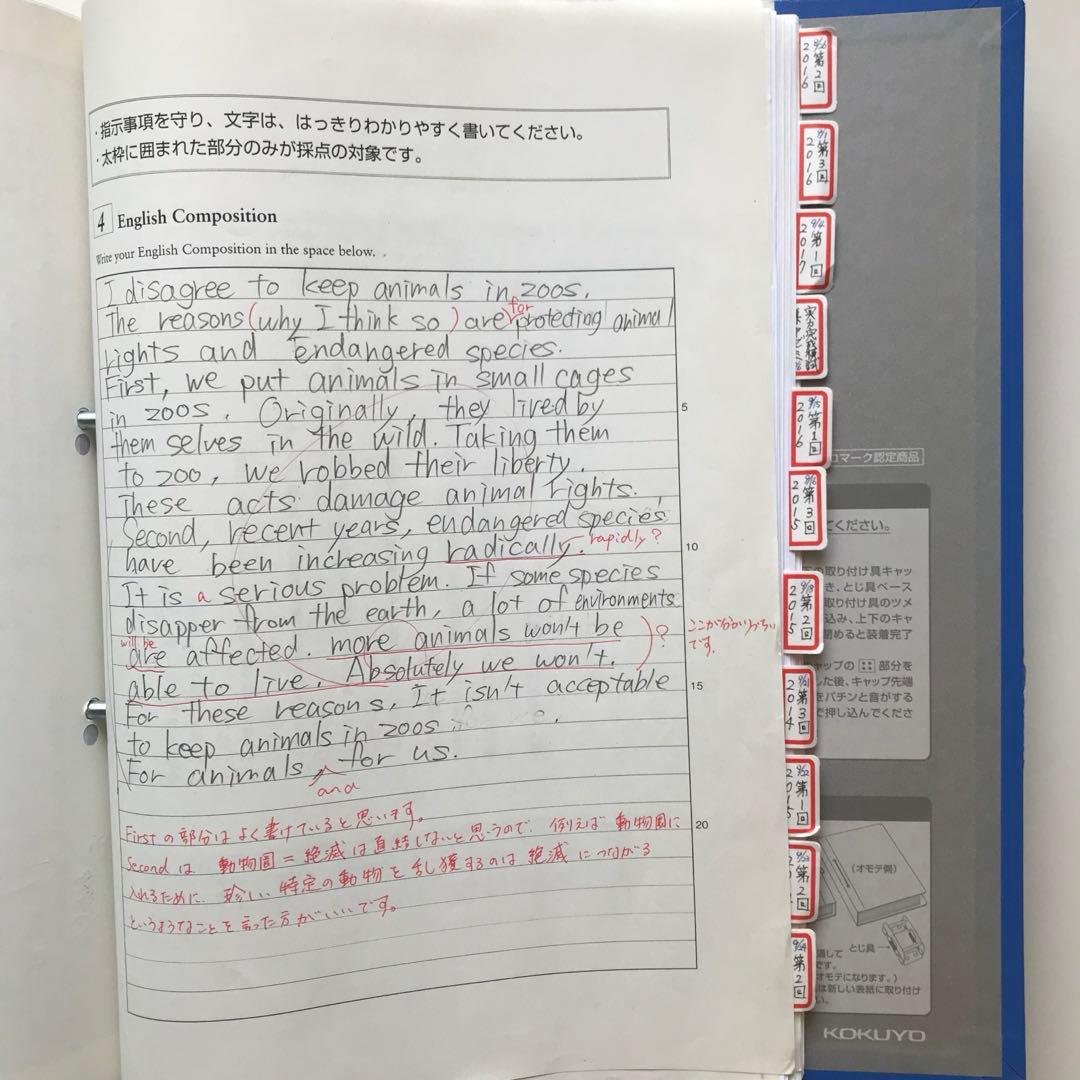 ・指示事項を守り、文字は、はっきりわかりやすく書いてください。
・太枠に囲まれた部分のみが採点の対象です。
4 English Composition
Write your English Composition in the space below.
I disagree to keep animals in zoos.
The reasons (why I think so) are for protecting animal
rights and endangered species.
First, we put animals in small cages
in zoos. Originally, they lived by
5
them selves in the wild. Taking them
to zoo, we robbed their liberty.
These acts damage animal rights.
Second, recent years, endangered species
have been increasing radically. rapidly?
10
It is a serious problem. If some species
disapper from the earth, a lot of environments
will be
are affected. more animals won't be
?
ここが分かりづらい
です。
able to live. Absolutely we won't.
15
For these reasons, It isn't acceptable
to keep animals in zoos
For animals for us.
and
Firstの部分はよく書けていると思います。
20
Secondは 動物園=絶滅は直結しないと思うので、例えば 動物園に
入れるために、珍しい特定の動物を乱獲するのは絶滅につながる
というようなことを言った方がいいです。
2016 第2回
2016 第3回
2017 第1回
2016 第1回
2015 第3回
2015 第2回
2014 第3回
第1回
第2回
第2回
コマーク認定商品
てください。
下の取り付け具キャッ
き、とじ具ベース
取り付け具のツメ
込み、上下のキャ
閉めると装着完了
キャップの 部分を
した後、キャップ先端
をパチンと音がする
で押し込んでくださ
(オモテ側)
とじ具
通して
です。
オモテになります。)
は新しい表紙に取り付け
い。
KOKUYO